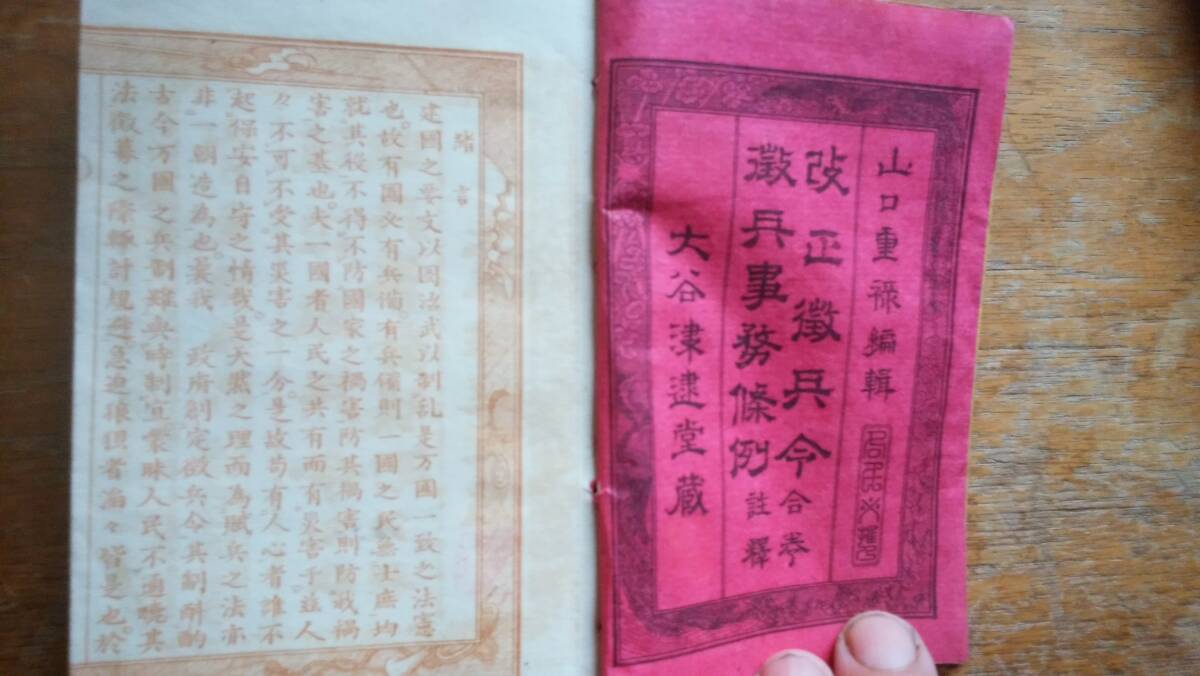 山口重祿編輯
改正徵兵令
徵兵事務條例
合卷
註釋
大谷津逮堂藏
緒言
建國之要文以図治武以制乱是万國一致之法憲
也故有國必有兵備有兵備則一國之民無士庶均
就其役不得不防國家之禍害防其禍害則防我禍
害之基也夫一國者人民之共有而有災害于茲人
々不可不受其災害之一分是故苟有人心者誰不
起保安自守之情哉是天然之理而為賦兵之法亦
非一朝造為也襄我 政府創定徵兵令其制斟酌
古今万國之兵制雖與時制宜蒙昧人民不通曉其
法徵募之際 計規避急迫狼狽者滔々皆是也於